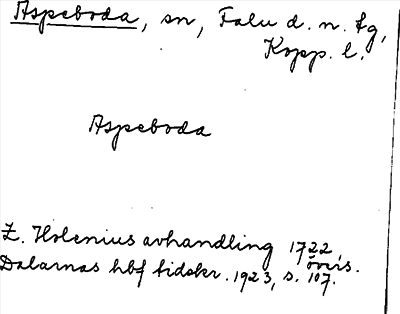 Aspeboda, sn, Falu d. n. tg,
Kopp. l.
Aspeboda
Z. Holenius avhandling 1722,
övers.
Dalarnas hbf tidskr. 1923, s. 107.